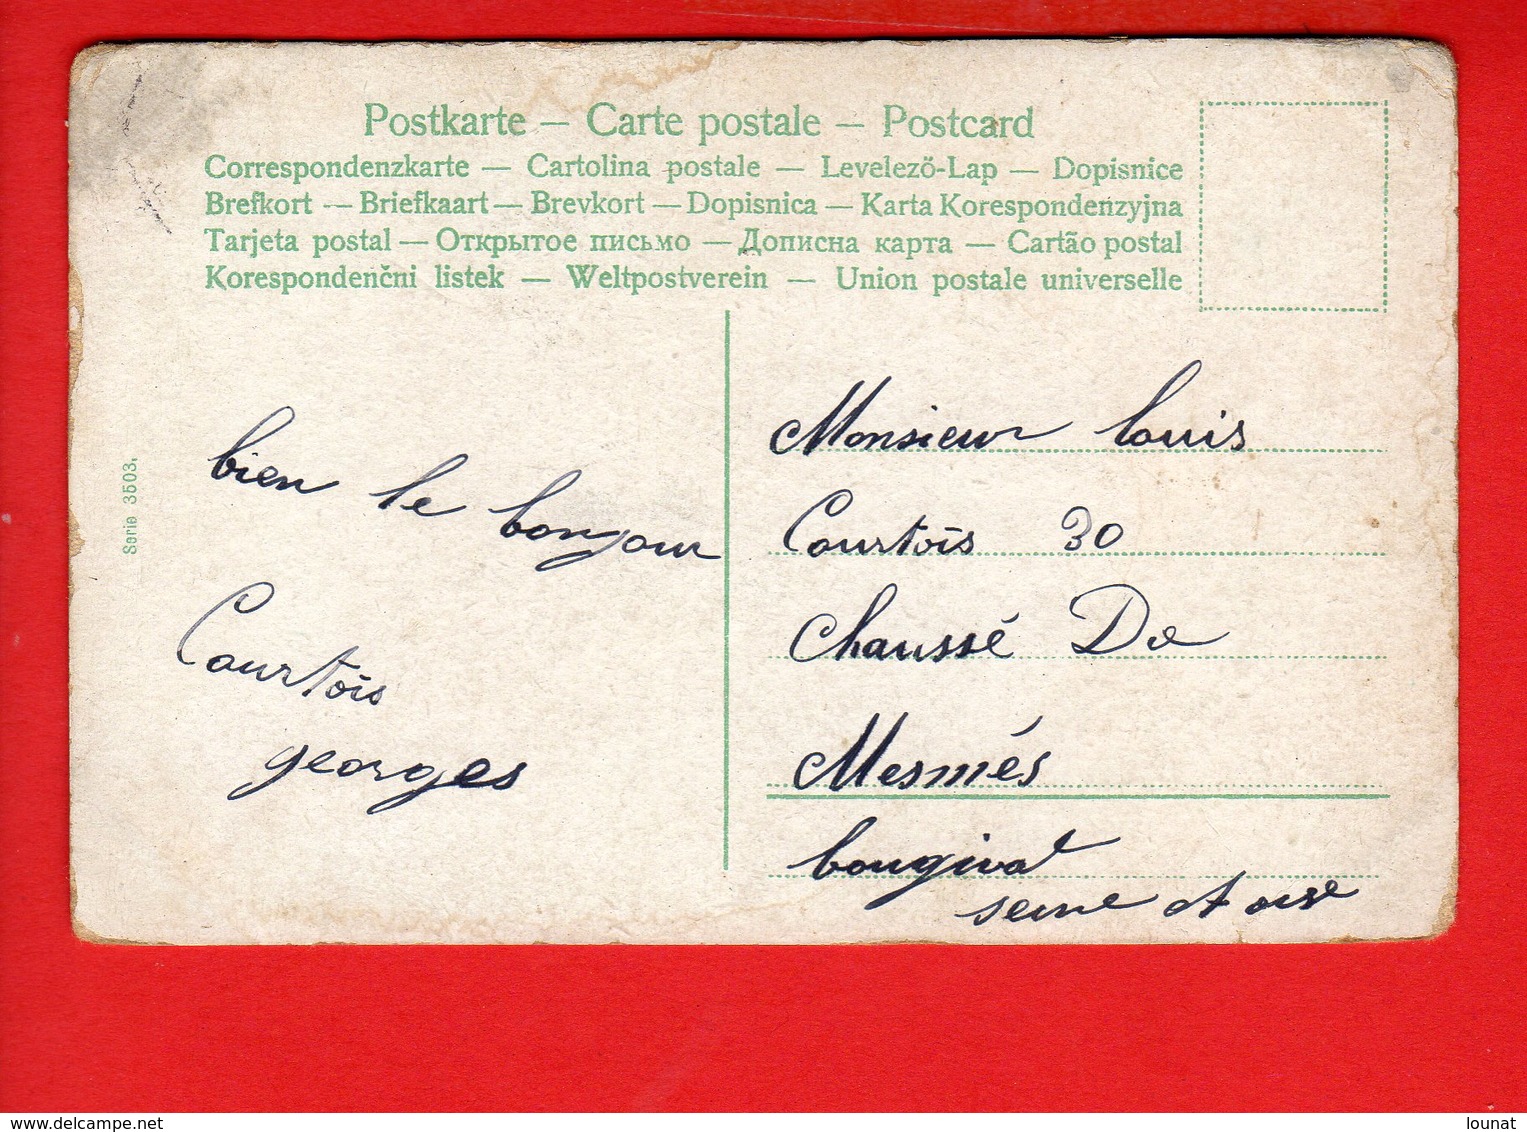 Postkarte – Carte postale – Postcard
Correspondenzkarte — Cartolina postale — Levelező-Lap — Dopisnice
Brefkort — Briefkaart — Brevkort — Dopisnica — Karta Korespondenzyjna
Tarjeta postal — Открытое письмо — Дописна карта — Cartão postal
Korespondenčni listek — Weltpostverein — Union postale universelle
Serie 3503.
bien le bonjour
Courtois
georges
Monsieur louis
Courtois 30
Chaussé De
Mesmés
bougival
seine et oise
www.delcampe.net
lounat